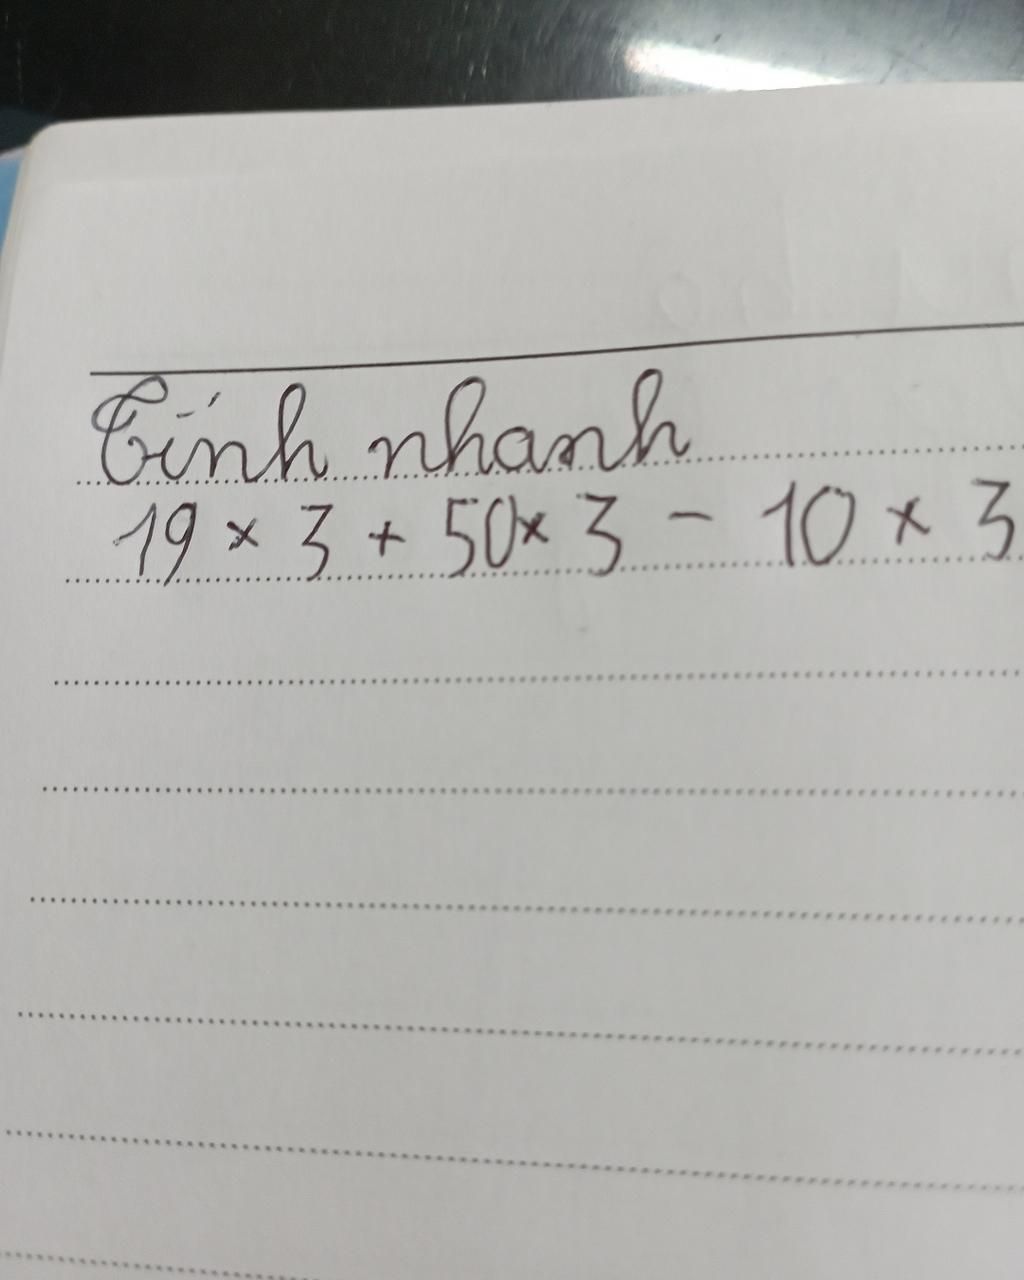 Tính nhanh
19 × 3 + 50 × 3 - 10 × 3